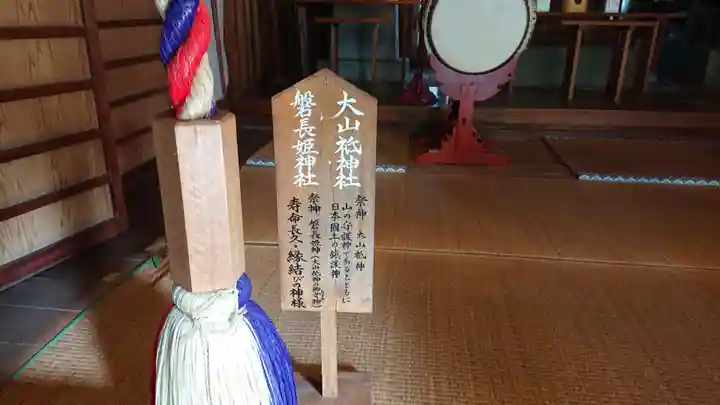 大山祇神社
祭神 大山祇神
山の守護神であるとともに
日本国土の鎮護神
磐長姫神社
祭神 磐長姫神(大山祇神の御女神)
寿命長久・縁結びの神様